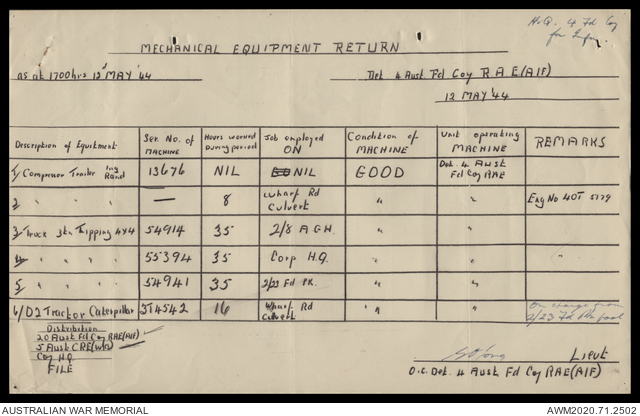 H.Q. 4 Fd Coy
for Infm.
MECHANICAL EQUIPMENT RETURN
as at 1700hrs 12 MAY '44
Det 4 Aust Fd Coy R A E (AIF)
12 MAY '44
Description of Equipment | Ser. No. of MACHINE | Hours worked During period | Job employed ON | Condition of MACHINE | Unit operating MACHINE | REMARKS
1/ Compressor Trailer Ing Rand | 13676 | NIL | NIL | GOOD | Det. 4 Aust Fd Coy RAE
2/ " " " | — | 8 | Wharf Rd Culvert | " | " | Eng No 40T 5179
3/ Truck 3tn Tipping 4x4 | 54914 | 35 | 2/8 A.G.H. | " | "
4/ " " " " | 55394 | 35 | Corp H.Q. | " | " | "
5/ " " " " | 54941 | 35 | 2/23 Fd PK. | " | "
6/ D2 Tractor Caterpillar | 5J4542 | 16 | Wharf Rd Culvert | " | " | On charge from 2/23 Fd Pk
Distribution
20 Aust Fd Coy RAE (AIF)
5 Aust CRE (Wks)
Coy H.Q.
FILE
Lieut
O.C. Det. 4 Aust Fd Coy RAE (AIF)
AUSTRALIAN WAR MEMORIAL
AWM2020.71.2502